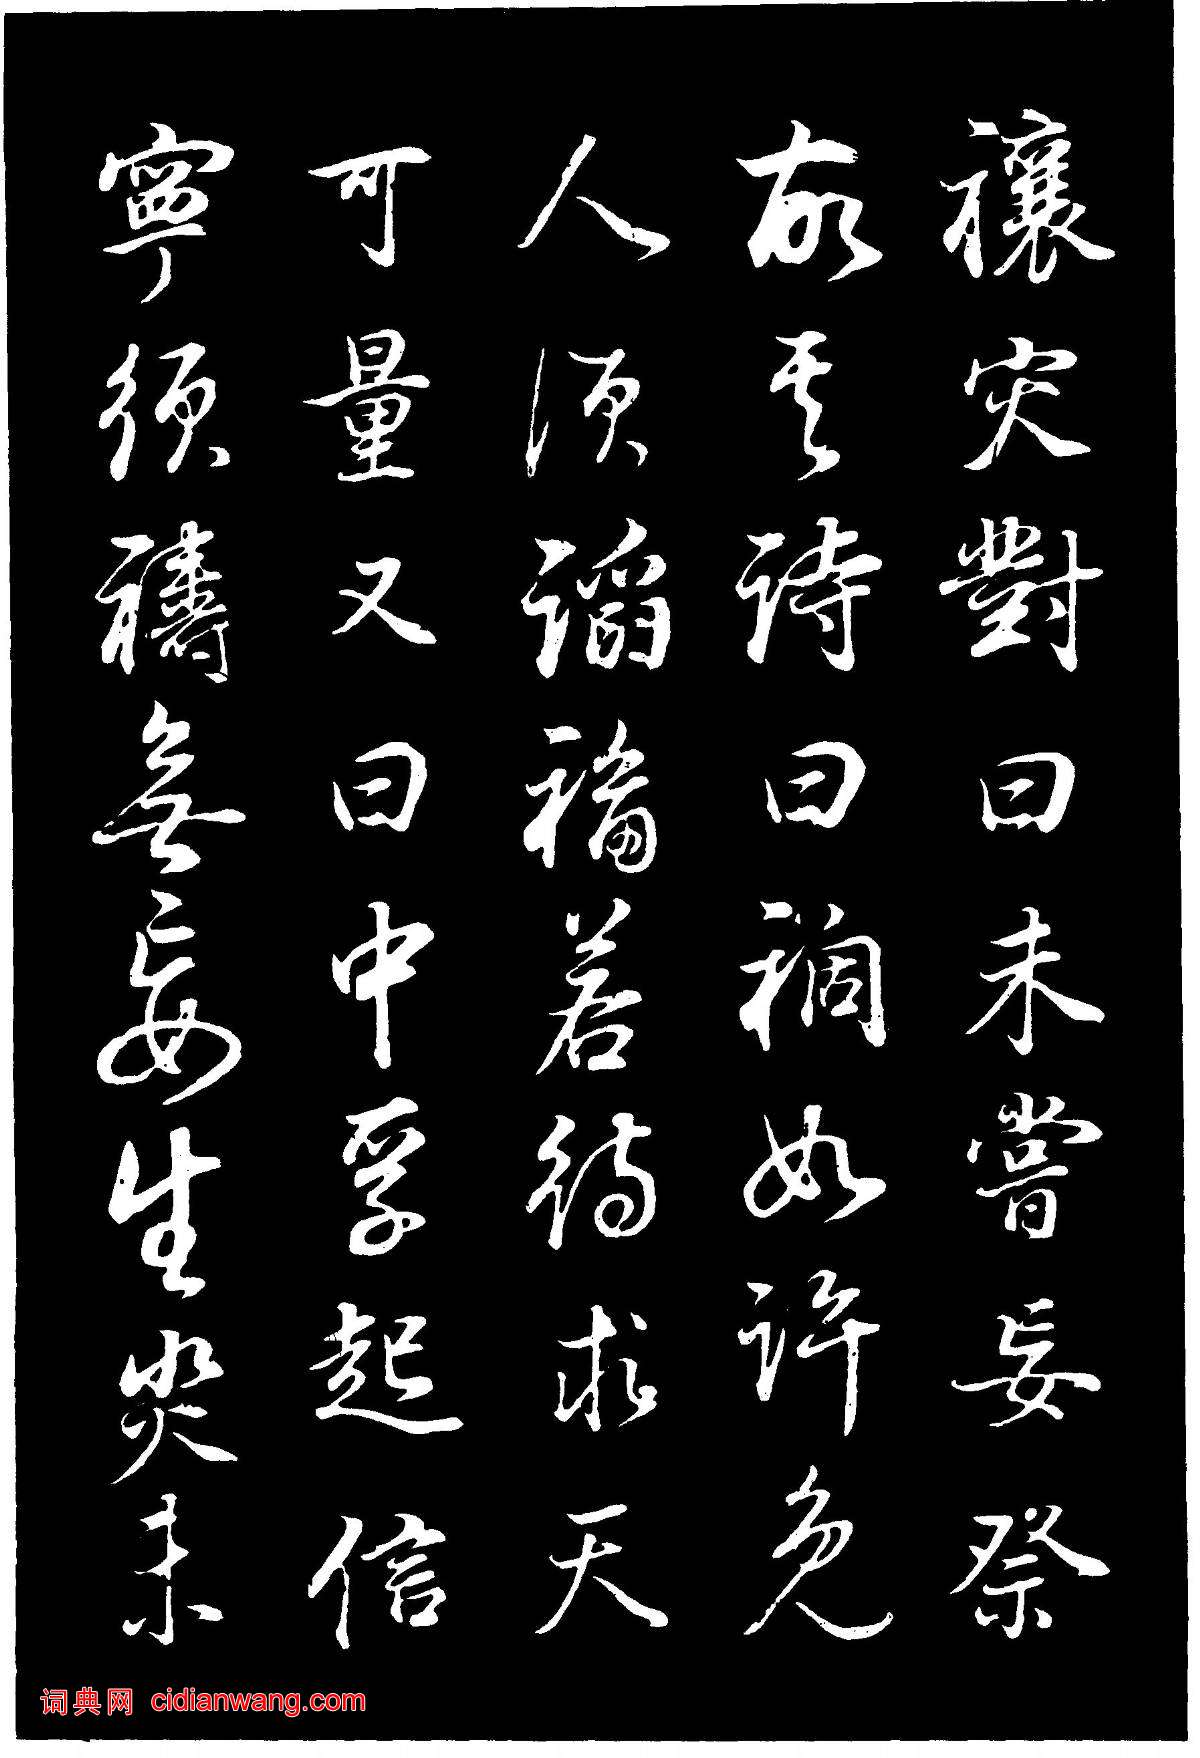 禳灾對曰未嘗妄祭
故其詩曰禍如許免
人須謟福若待求天
可量又曰中孚起信
寧須禱無妄生災未
词典网 cidianwang.com